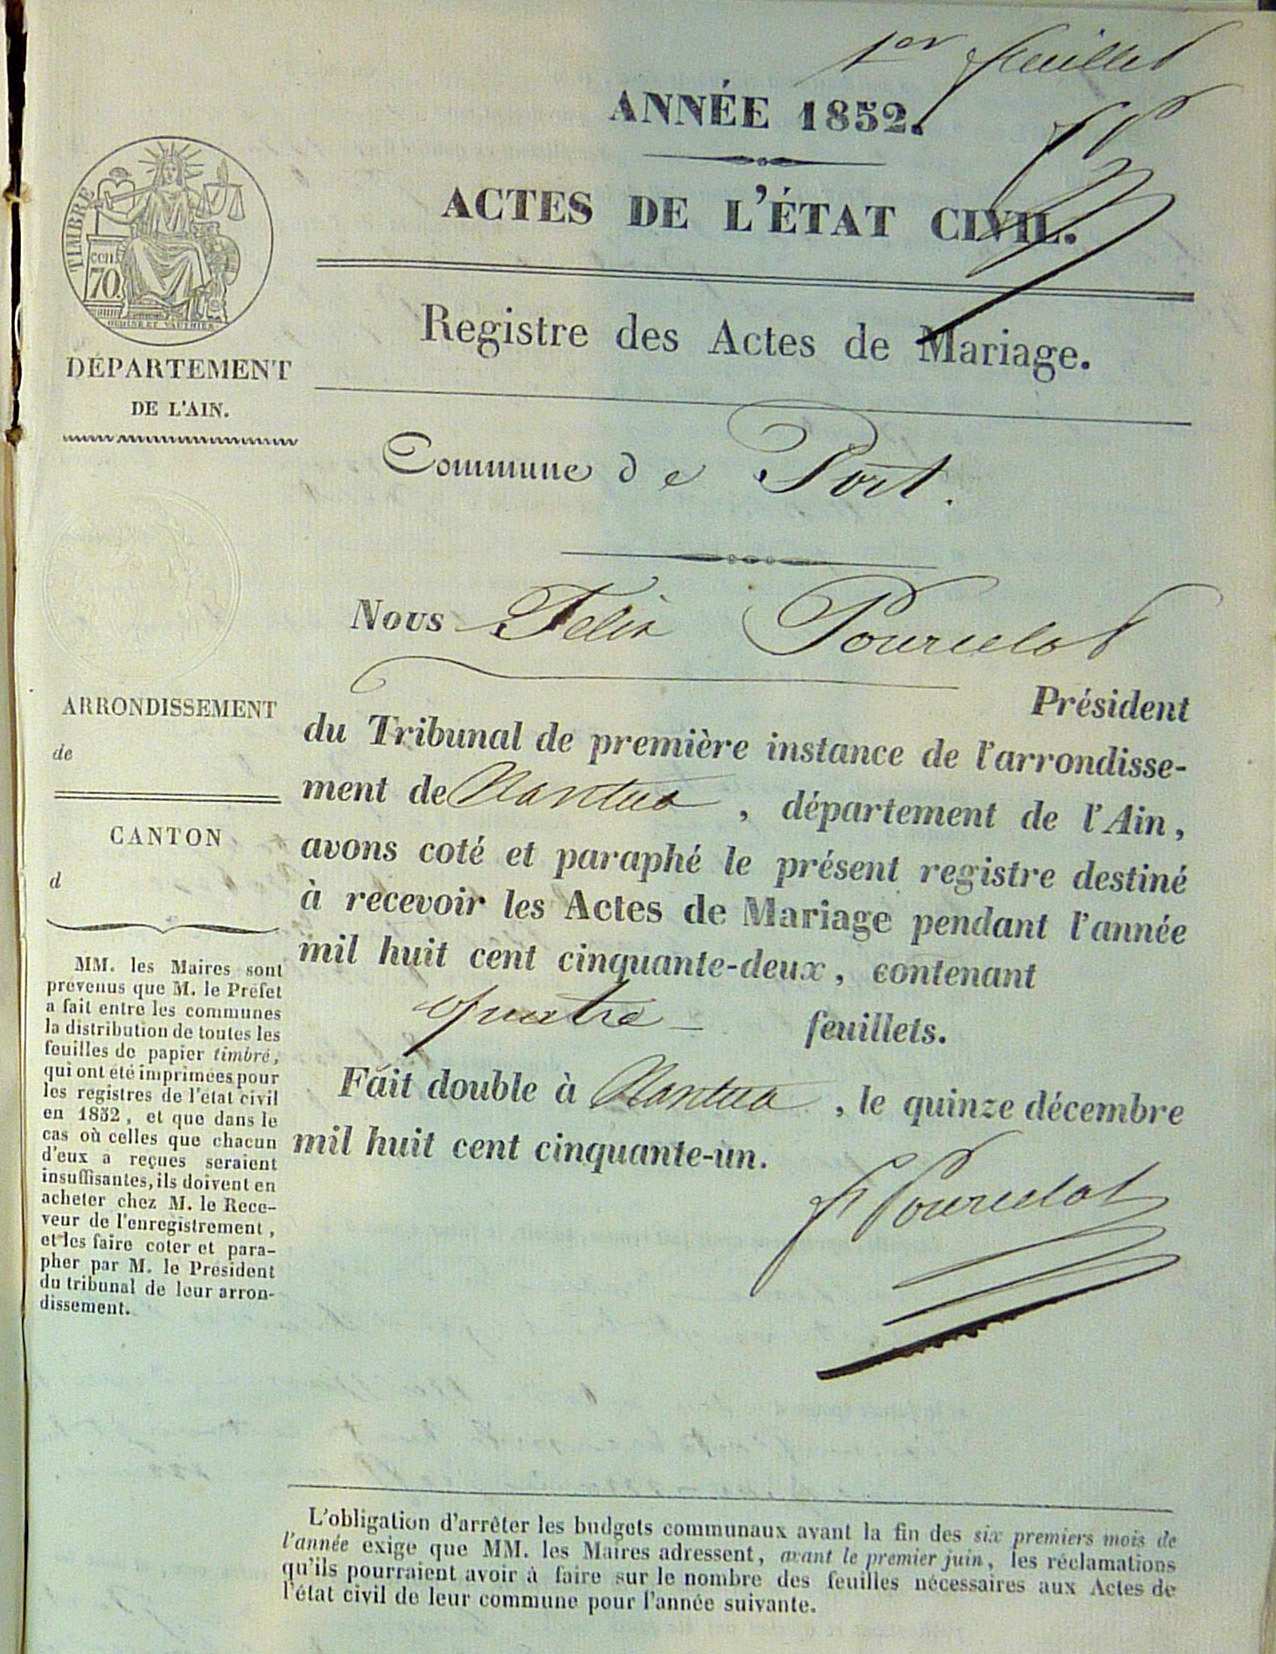 1er feuillet
ANNÉE 1852.
ACTES DE L'ÉTAT CIVIL.
Registre des Actes de Mariage.
TIMBRE
cen.
70
DÉPARTEMENT
DE L'AIN.
Commune de Port.
Nous Félix Pourcelot
Président
du Tribunal de première instance de l'arrondisse-
ment de Nantua, département de l'Ain,
avons coté et paraphé le présent registre destiné
à recevoir les Actes de Mariage pendant l'année
mil huit cent cinquante-deux, contenant
quatre feuillets.
Fait double à Nantua, le quinze décembre
mil huit cent cinquante-un.
F Pourcelot
ARRONDISSEMENT
de
CANTON
d
MM. les Maires sont
prévenus que M. le Préfet
a fait entre les communes
la distribution de toutes les
feuilles de papier timbré,
qui ont été imprimées pour
les registres de l'état civil
en 1852, et que dans le
cas où celles que chacun
d'eux a reçues seraient
insuffisantes, ils doivent en
acheter chez M. le Rece-
veur de l'enregistrement,
et les faire coter et para-
pher par M. le Président
du tribunal de leur arron-
dissement.
L'obligation d'arrêter les budgets communaux avant la fin des six premiers mois de
l'année exige que MM. les Maires adressent, avant le premier juin, les réclamations
qu'ils pourraient avoir à faire sur le nombre des feuilles nécessaires aux Actes de
l'état civil de leur commune pour l'année suivante.